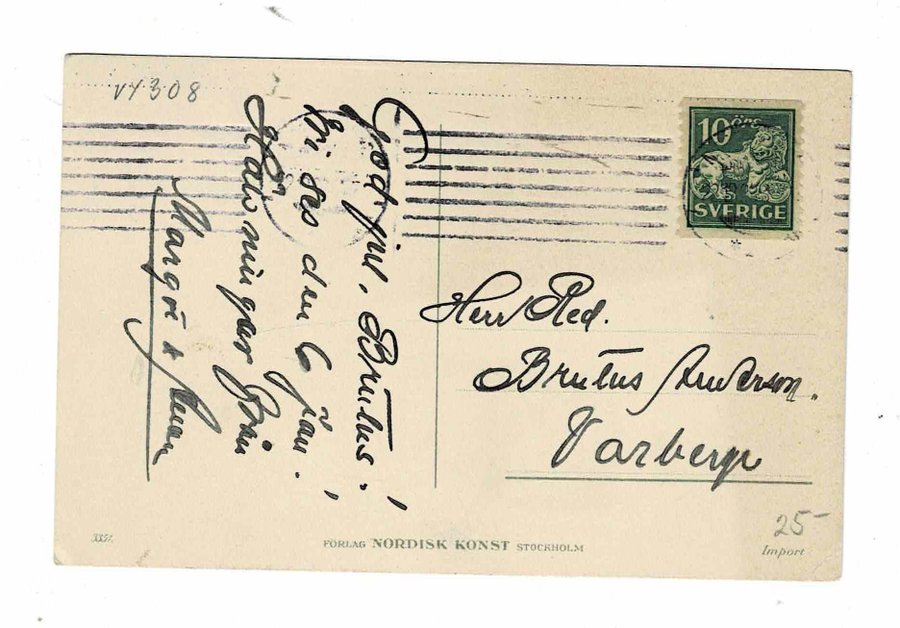 VY308
God jul, Brutus!
Vi ses den 6 jan.!
Margit &
10 ÖRE
SVERIGE
Herr Red.
Brutus Anderson.
Varberg
3357.
FÖRLAG NORDISK KONST STOCKHOLM
25-
Import